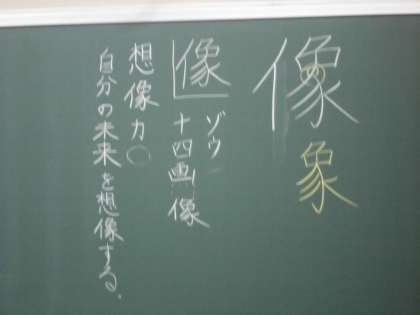 像
象
像
ゾウ
十四画像
想像力○
自分の未来を想像する。